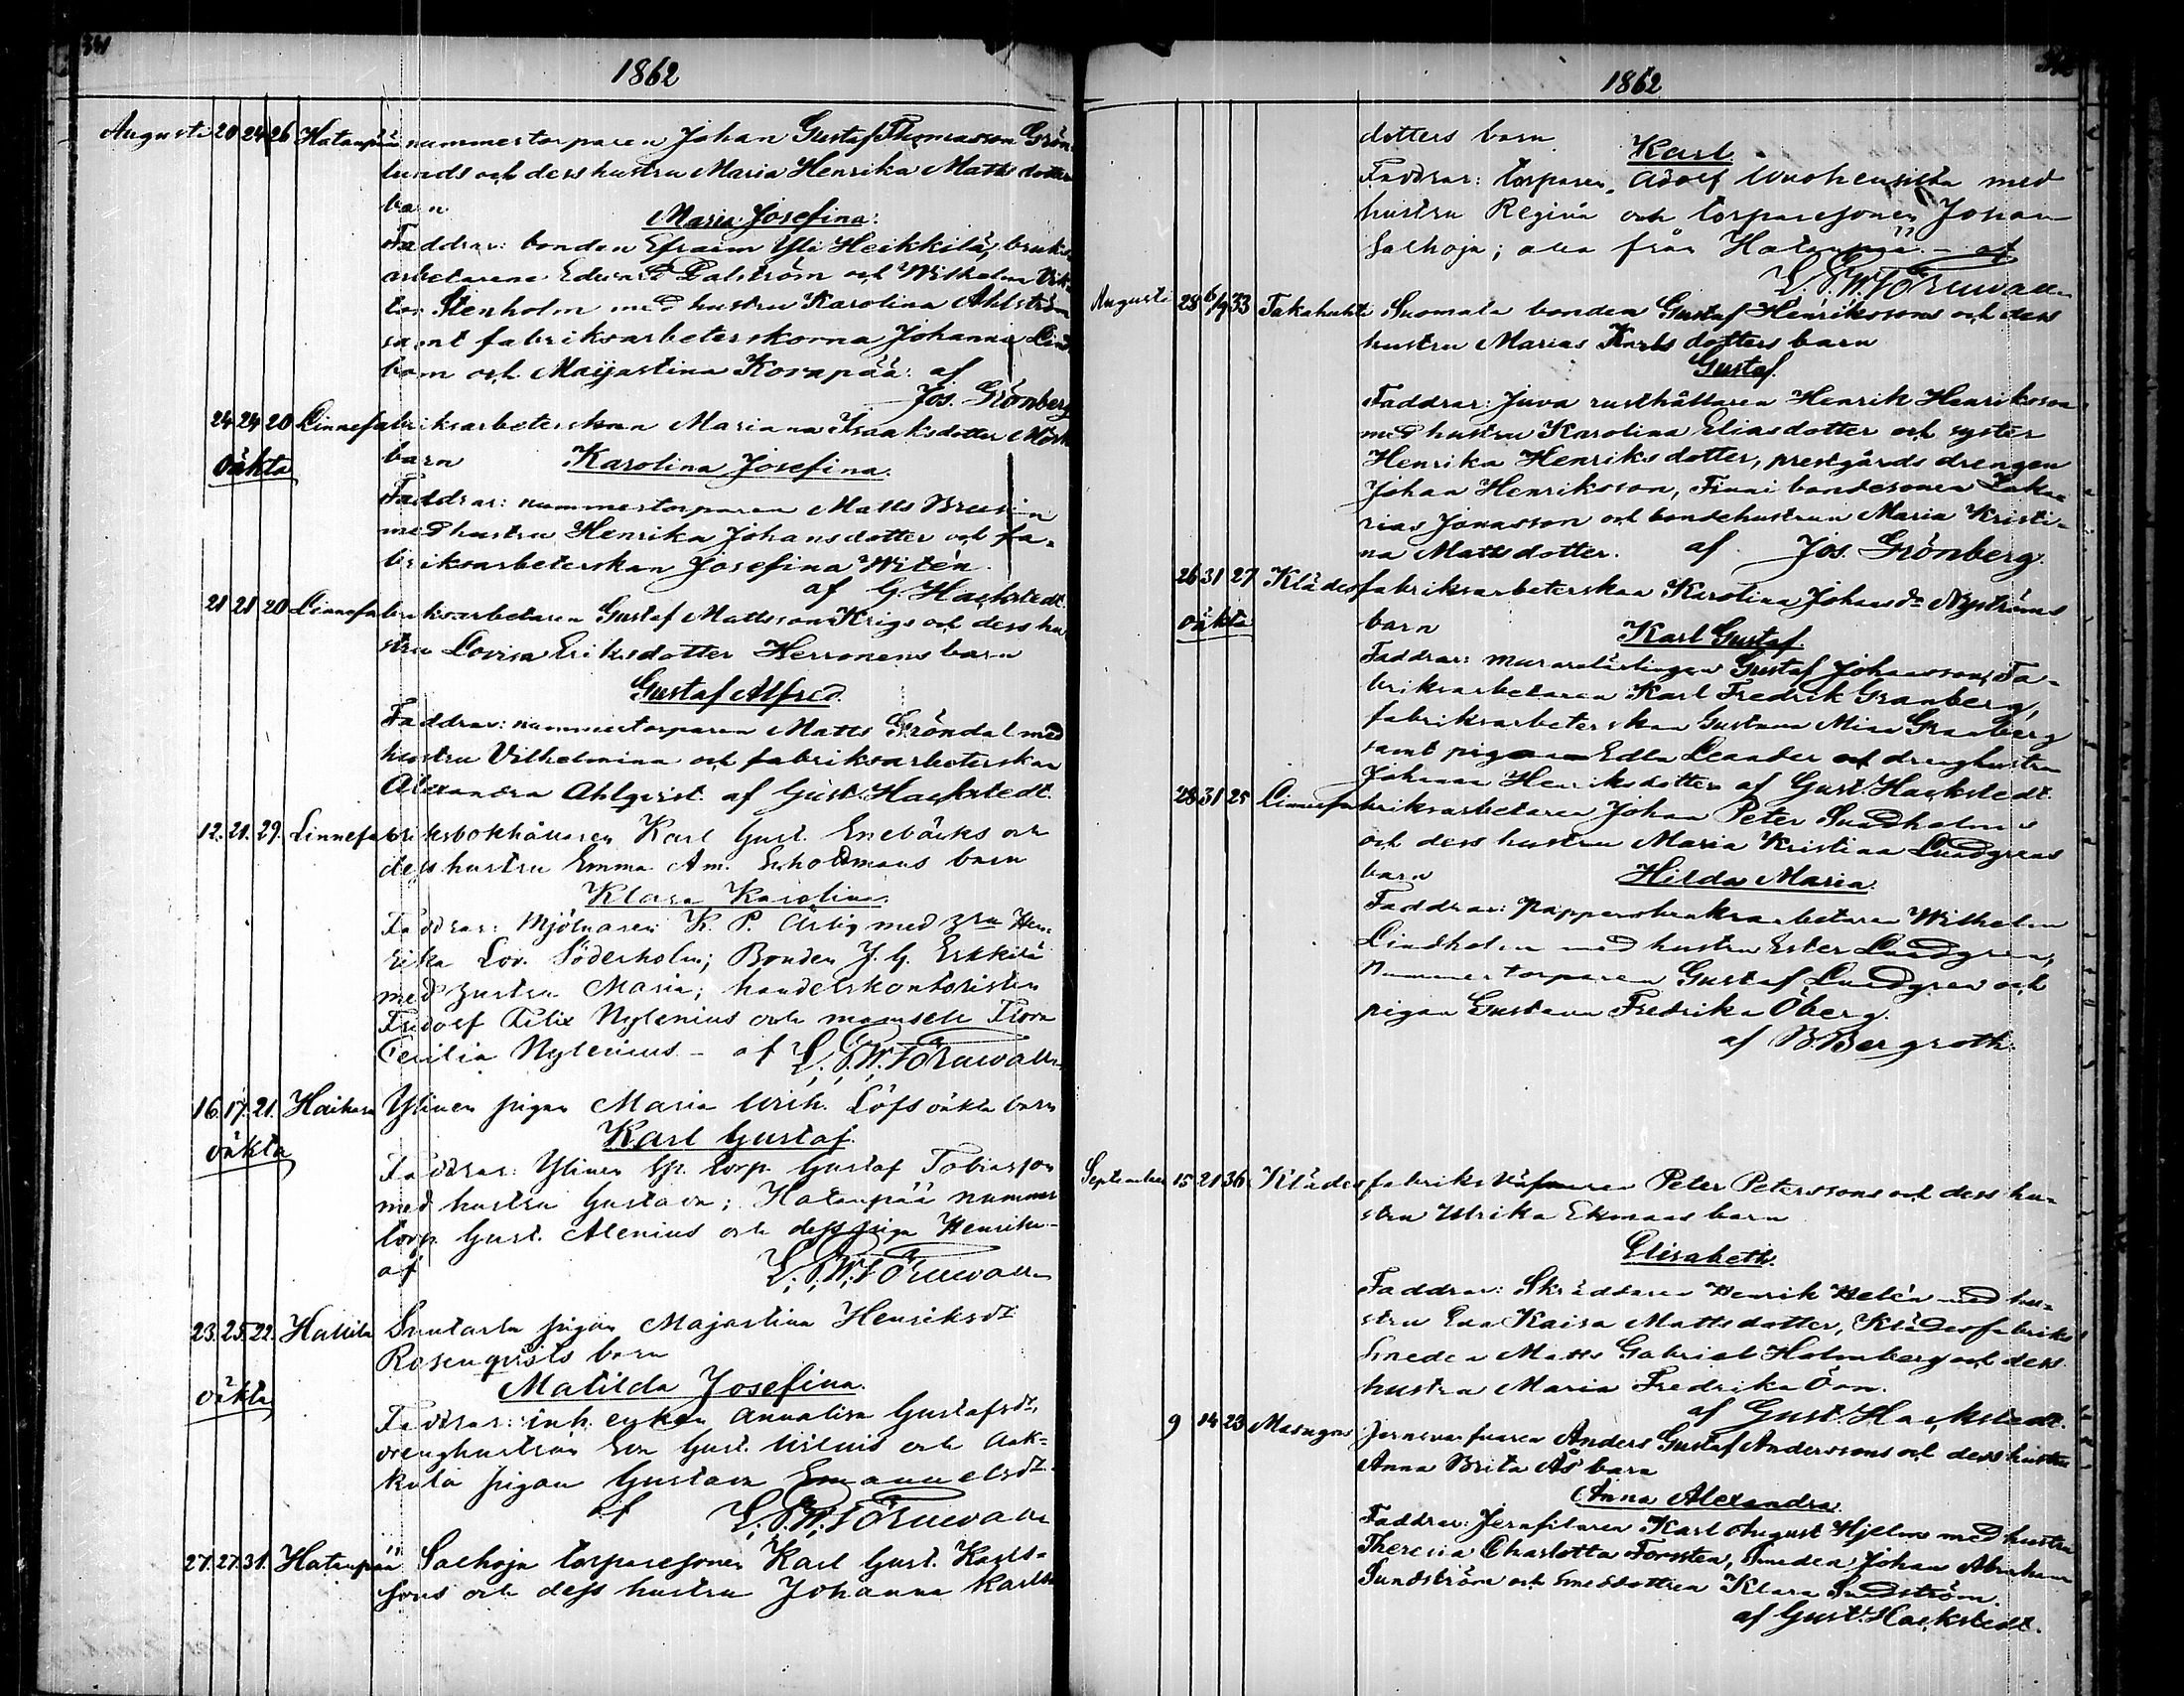 1862
Augusti 20 24 26 Hatanpää nummertorparen Johan Gustaf Thomasson Grön
lunds och dess hustru Maria Henrika Matts dotter
barn
Maria Josefina.
Faddrar: bonden Efraim Yli Heikkilä, bruks
arbetarene Edvard Dalström och Wilhelm Vik-
tor Stenholm med hustru Karolina Ahlström
samt fabriksarbeterskorna Johanna Lind
bom och Maijastina Korvpää: af
Jos. Grönberg
24 24 20 Linnefabriksarbeterskan Mariana Isaaksdotter
oäkta barn Karolina Josefina.
Faddrar: nummertorparen Matts Brusin
med hustru Henrika Johansdotter och fa-
briksarbeterskan Josefina Witén.
af G. Hackstedt.
21 21 20 Linnefabriksarbetaren Gustaf Mattsson Krigs och dess hu
stru Lovisa Eriksdotter Herronens barn
Gustaf Alfred.
Faddrar: nummertorparen Matts Gröndal med
hustru Vilhelmina och fabriksarbeterskan
Alexandra Ahlqvist. af Gust. Hackstedt.
12. 21. 29. Linnefabriksbokhållaren Karl Gust. Enebäcks och
dess hustru Emma Am. Enholdmans barn
Klara Karolina.
Faddrar: Mjölnaren K. P. Ärlig med hru Hen-
rika Lov. Söderholm; Bonden J. G. Erkkilä
med hustru Maria; handelskontoristen
Fridolf Felix Nylenius och mamsell Flora
Cecilia Nylenius - af L. P. W. Törnwall
16. 17. 21. Haihara Ylinen pigan Maria Ulrik. Löfs oäkta barn
oäkta Karl Gustaf.
Faddrar: Ylinen sp. torp. Gustaf Tobiasson
med hustru Gustava; Hatanpää nummer
torp. Gust. Alenius och dess piga Henrika-
af L. P. W. Törnwall
23. 25. 22. Hallila Suutarla pigan Majastina Henriksdt
Rosenqvists barn
oäkta Matilda Josefina.
Faddrar: inh. enkan Annalisa Gustafsdt,
drenghustrun Eva Gust. Wilenis och Aak-
kula pigan Gustava Emanuelsdt-
af L. P. W. Törnwall
27. 27. 31. Hatanpää Salhoja torparesonen Karl Gust. Karls-
sons och dess hustru Johanna Karls
1862
dotters barn
Karl.
Faddrar: torparen Adolf Wuohensilta med
hustru Regina och torparesonen Johan
Salhoja; alla från Hatanpää - af
L. P. W. Törnwall
Augusti 28 6/9 33 Takahuhti Suomala bonden Gustaf Henrikssons och dess
hustru Marias Karls dotters barn
Gustaf.
Faddrar: Juva rusthållaren Henrik Henriksson
med hustru Karolina Eliasdotter och syster
Henrika Henriksdotter, prestgårds drengen
Johan Henriksson, Finni bondesonen Zaka-
rias Jonasson och bondehustrun Maria Kristi-
na Mattsdotter. af Jos. Grönberg.
26 31 27 Klädesfabriksarbeterskan Karolina Johans dr Nyströms
oäkta barn
Karl Gustaf.
Faddrar: murarelärlingen Gustaf Johansson, Fa-
briksarbetaren Karl Fredrik Granberg,
fabriksarbeterskan Gustava Mina Granberg
samt pigan Edla Leander och drenghustru
Johanna Henriksdotter af Gust. Hackstedt.
28 31 25 Linnefabriksarbetaren Johan Peter Sundholms
och dess hustru Maria Kristina Lundgrens
barn
Hilda Maria.
Faddrar: Pappersbruksarbetaren Wilhelm
Lindholm med hustru Ester Lundgren,
Nummertorparen Gustaf Lundgren och
pigan Gustava Fredrika Öberg.
af B Bergroth.
September 15 21 36 Klädesfabriks Väfvaren Peter Peterssons och dess hu-
stru Ulrika Ekmans barn
Elisabeth.
Faddrar: Skräddaren Henrik Helén med hu-
stru Eva Kaisa Mattsdotter, Klädesfabriks
Smeden Matts Gabriel Holmberg och dess
hustru Maria Fredrika Öon.
af Gust. Hackstedt.
9 14 23 Masugns Jernsvarfvaren Anders Gustaf Anderssons och dess hustru
Anna Brita Ås barn
Anna Alexandra.
Faddrar: Jernfilaren Karl August Hjelm med hustru
Theresia Charlotta Forsten, Smeden Johan Abraham
Sundström och Smeddottren Klara Sundström.
af Gust. Hackstedt.